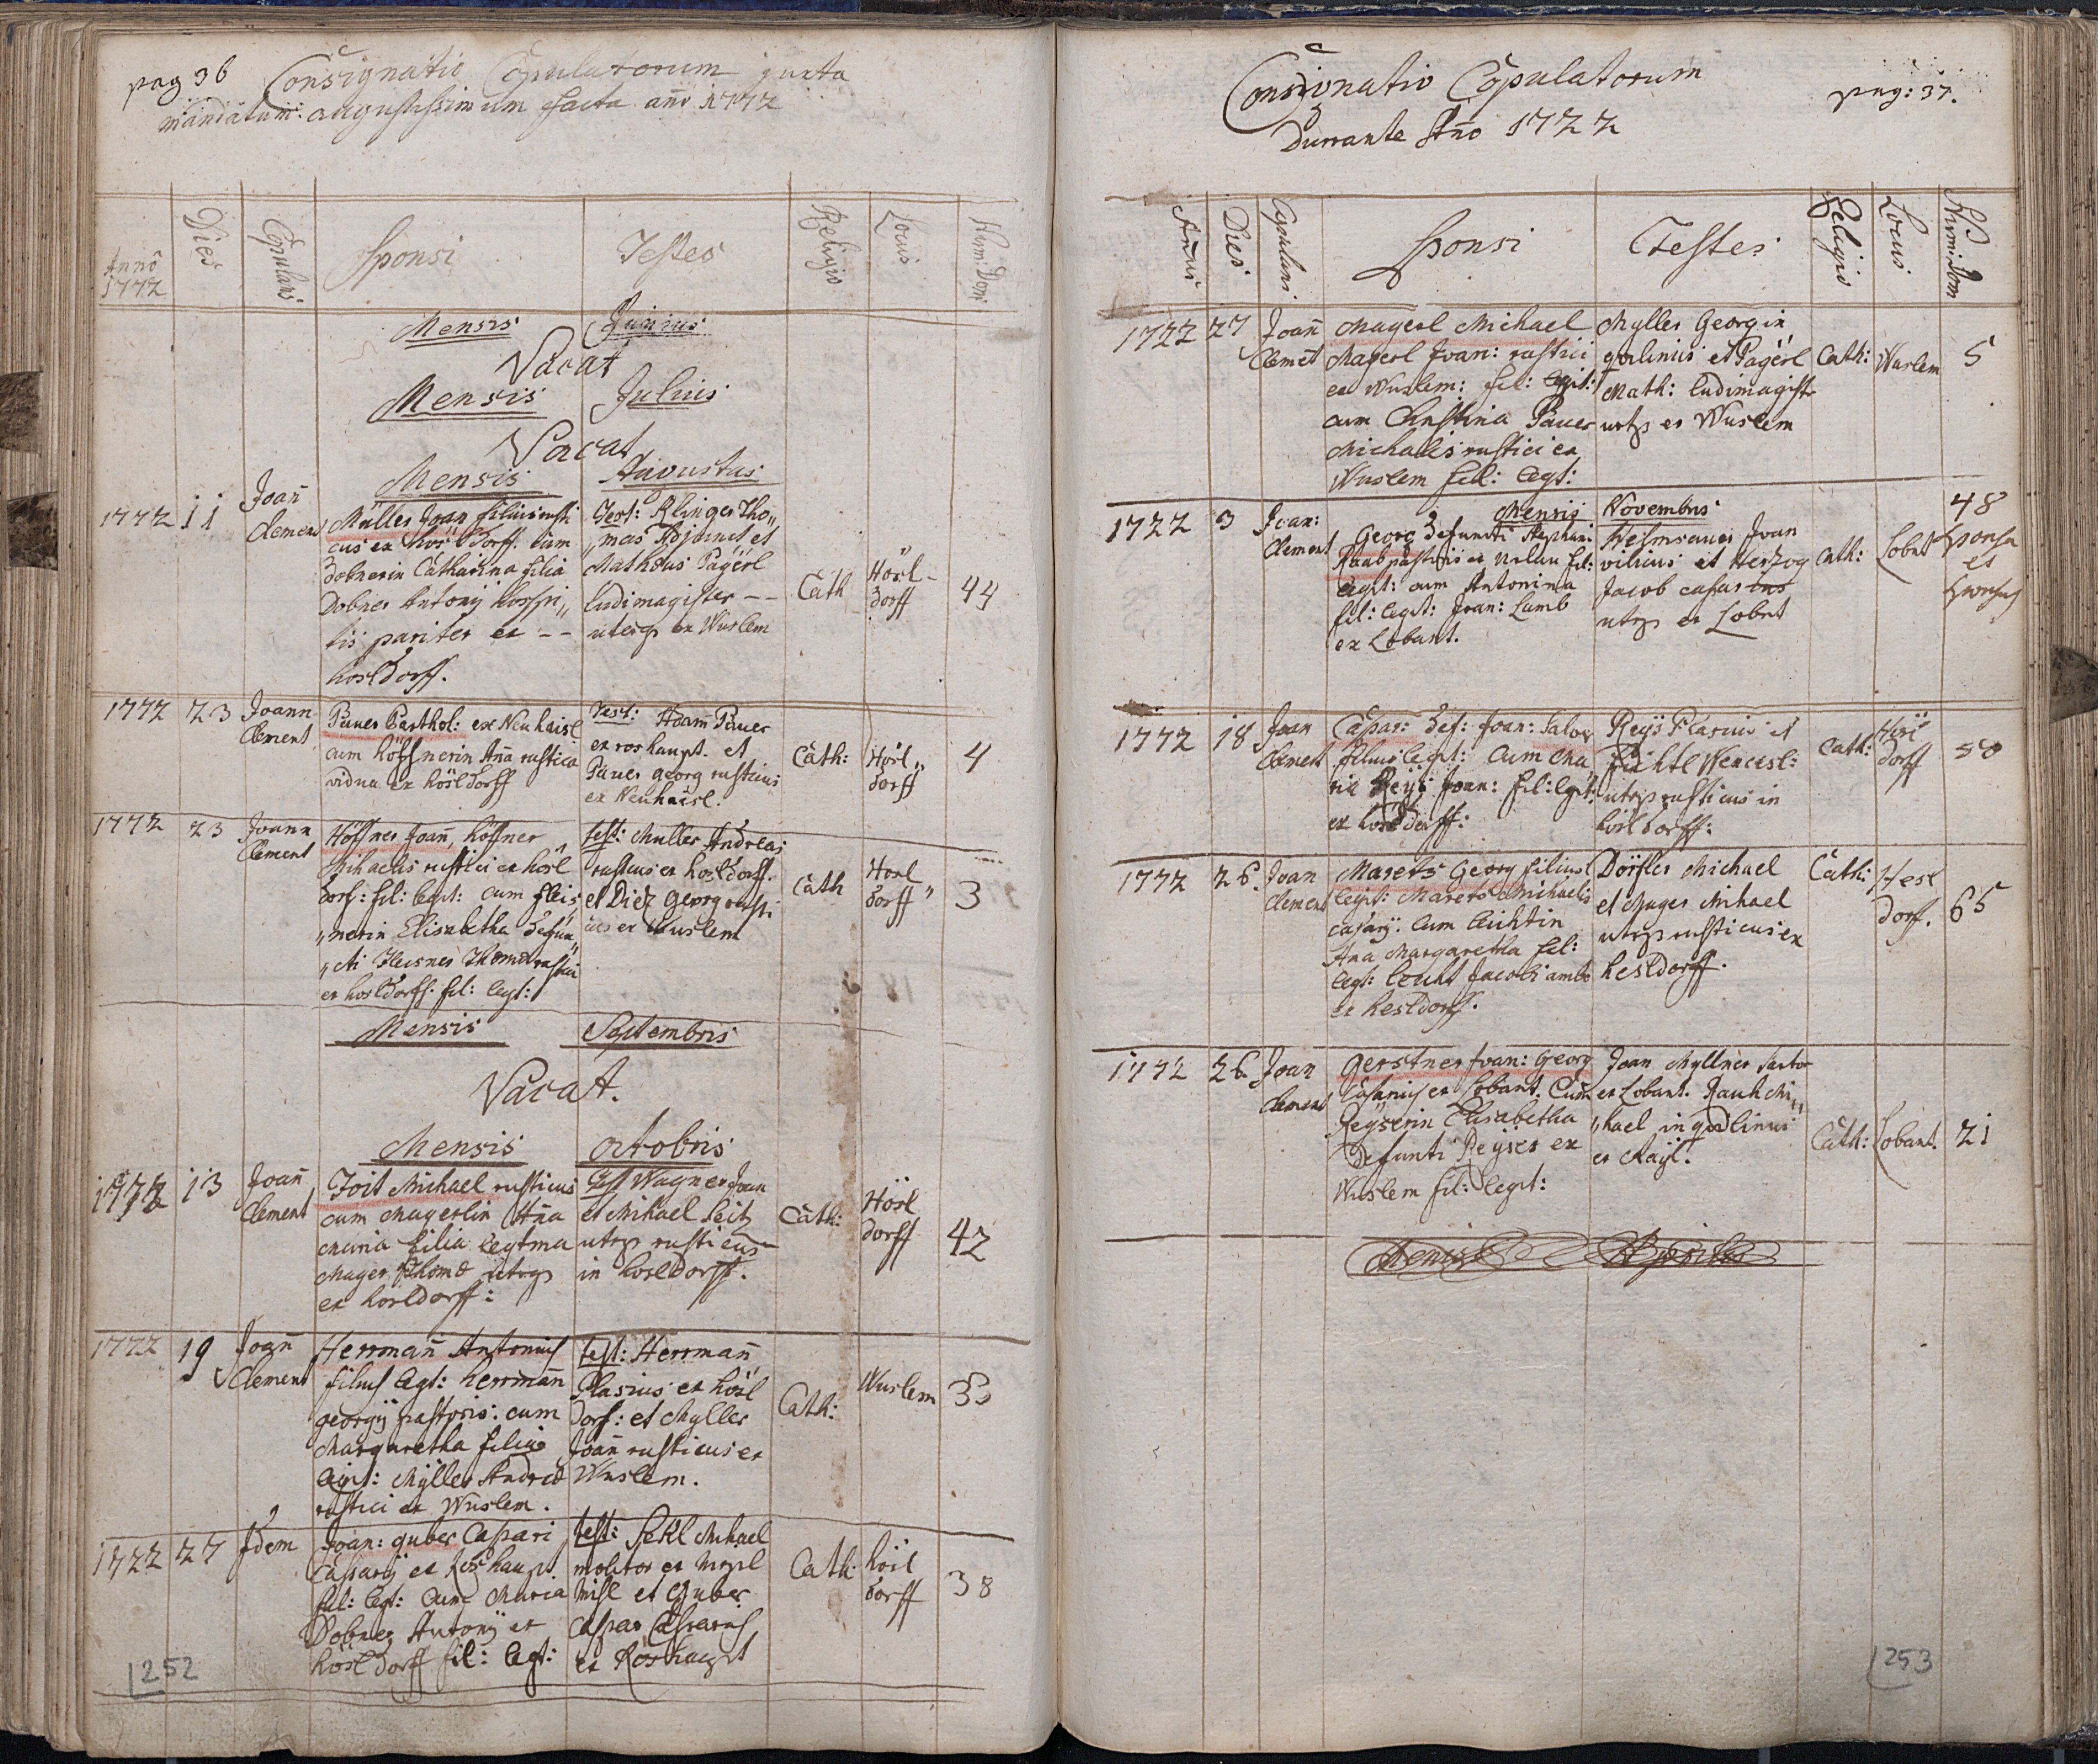 pag 36 Consignatio Copulatorum juxta
mandatum augustissimum facta año 1772
Anno
1772
Dies
Copulans
Sponsi
Testes
Religio
Locus
Num: Dom
Mensis Junius
Vacat
Mensis Julius
Vacat
Mensis Augustus
1772 11 Joañ
Clement
Müller Joan filius rusti
cus ex hös Dorff. cum
Dobnerin Catharina filia
Dobner Antonij hospi„
tis pariter ex --
hosldorff.
Test: Klinger Tho„
„mas Adjunct et
Matheus Pagerl
ludimagister --
uterqs ex Wuslem
Cath
Hösl-
dorff
44
1772 23 Joann
Clement
Pauer Barthol: ex Neuhaisl
cum höffnerin Aña rustica
vidua ex hösldorff
Test: Adam Pauer
ex roshaupt. et
Pauer georg rusticus
ex Neuhaisl.
Cath:
Hösl„
dorff
4
1772 23 Joann
Clement
Höffner Joañ, höffner
Mihaelis rustici ex hösl
dorf: fil: legit: cum fleis
„nerin Elisabetha defun„
„cti Fleisner Thomæ rustici
ex hosldorff. fil: legt:
test: Muller Andreas
rusticus ex hosldorff.
et Diez georg rusti
cus ex Wuslem
Cath
Hosl
dorff„
3
Mensis Septembris
Vacat.
Mensis octobris
1772 13 Joañ
Clement
Joit Michael rusticus
cum Magerlin Aña
Maria filia legtma
Mager Thomæ utrqs
ex hörldorff:
Test Wagner Joan
et Mihael Seitz
utrqs rusticus
in hosldorff.
Cath:
Hösl
dorff
42
1772 19 Joañ
Clement
Herrmañ Antonius
filius legt: herrmañ
georgij pastoris: cum
Margaretha filia
legit: Mÿller Andreæ
rustici ex Wuslem.
test: Herrmañ
Plasius ex hösl
dorf: et Myller
Joañ rusticus ex
Wuslem.
Cath:
Wuslem
33
1772 27 Idem
Joan: guber Caspari
Casparij ex Roshaupt.
fil: legt: cum Maria
Dobner Antonij ex
hösldorff fil: legt:
test: Sekl Mihael
molitor ex
Misl et guber
Caspar Casparius
ex Roshaupt
Cath:
hösl
dorff
38
252
Consignatio Copulatorum
Durrante Año 1722
pag: 37.
Annus
Dies
Copulans
Sponsi
Testes
Religio
Locus
Num: Dom
1722 27 Joañ
Clemet
Magerl Michael
Magerl Joan: rustici
ex Wuslem: fil: legit:
cum Christina Pauer
Michaelis rustici ex
Wuslem fil: legt:
Myller Georg in
quilinus et Pagerl
Math: ludimagistr
utrqs ex Wuslem
Cath:
Wuslem
5
Mensis Novembris
1722 3 Joan:
Clement
Georg defuncti Stephani
Raab pastoris ex fil:
legit: cum Antonina
fil: legit: Joan: Lamb
ex Lobant.
Helmsauer Joan
vilicus et Herzog
Jacob casarius
utrqs ex Lobnt
Cath:
Lobnt
48
Sponsa
et
Sponsus
1772 18 Joan
Clement
Caspar: def: Joan:
filius legit: cum Ma
ria Reÿs Joan: fil: legt:
ex hosldorff:
Reÿs Plasius et
Fichtl Wencesl:
utrqs rusticus in
hösldorff:
Cath:
dorff
50
1772 26. Joan
Clement
Marets Georg filius
legit: Marets Michaelis
casarij. cum Leichtin
Ana Margaretha fil:
legt: Leicht Jacobi ambo
ex hesldorff.
Dörfler Michael
et Mager Mihael
utrqs rusticus ex
hesldorff.
Cath:
Hesl
dorf.
65
1772 26 Joan
Clement
Gerstner Joan: Georg
Casarius ex Lobant. Cum
Reÿserin Elisabetha
defunti Reÿser ex
Wuslem fil: legit:
Joan Myllner sartor
ex Lobant. Rauh Mi„
„hael inquilinus
ex Mayl.
Cath:
Lobant.
21
Mensis
253